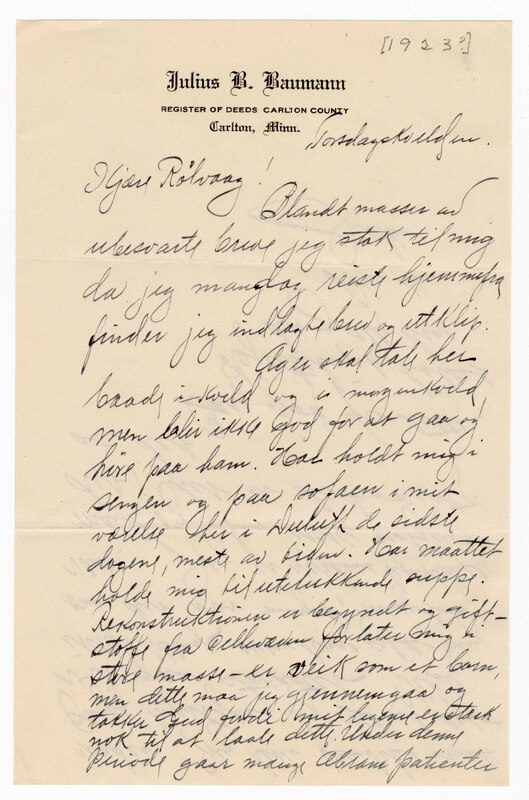 [1923?]
Julius B. Baumann
REGISTER OF DEEDS CARLTON COUNTY
Carlton, Minn.
Torsdagskvelden.
Kjære Rølvaag!
Blandt masser av
ubesvarte breve jeg stak til mig
da jeg mandag reiste hjemmefra
finder jeg indlagte brev og utklip.
Ager skal tale her
baade i kveld og i morgenkveld,
men blir ikke god for at gaa og
høre paa ham. Har holdt mig i
sengen og paa sofaen i mit
værelse her i Duluth de sidste
dagene, meste av tiden. Har maattet
holde mig til utelukkende suppe.
Rekonstruktionen er begyndt og gift-
stoffe fra cellevæven forlater mig i
store masse - er veik som et barn,
men dette maa jeg gjennemgaa og
takker Gud fordi mit hjerte er sterk
nok til at taale dette. Under denne
periode gaar mange Abram patienter